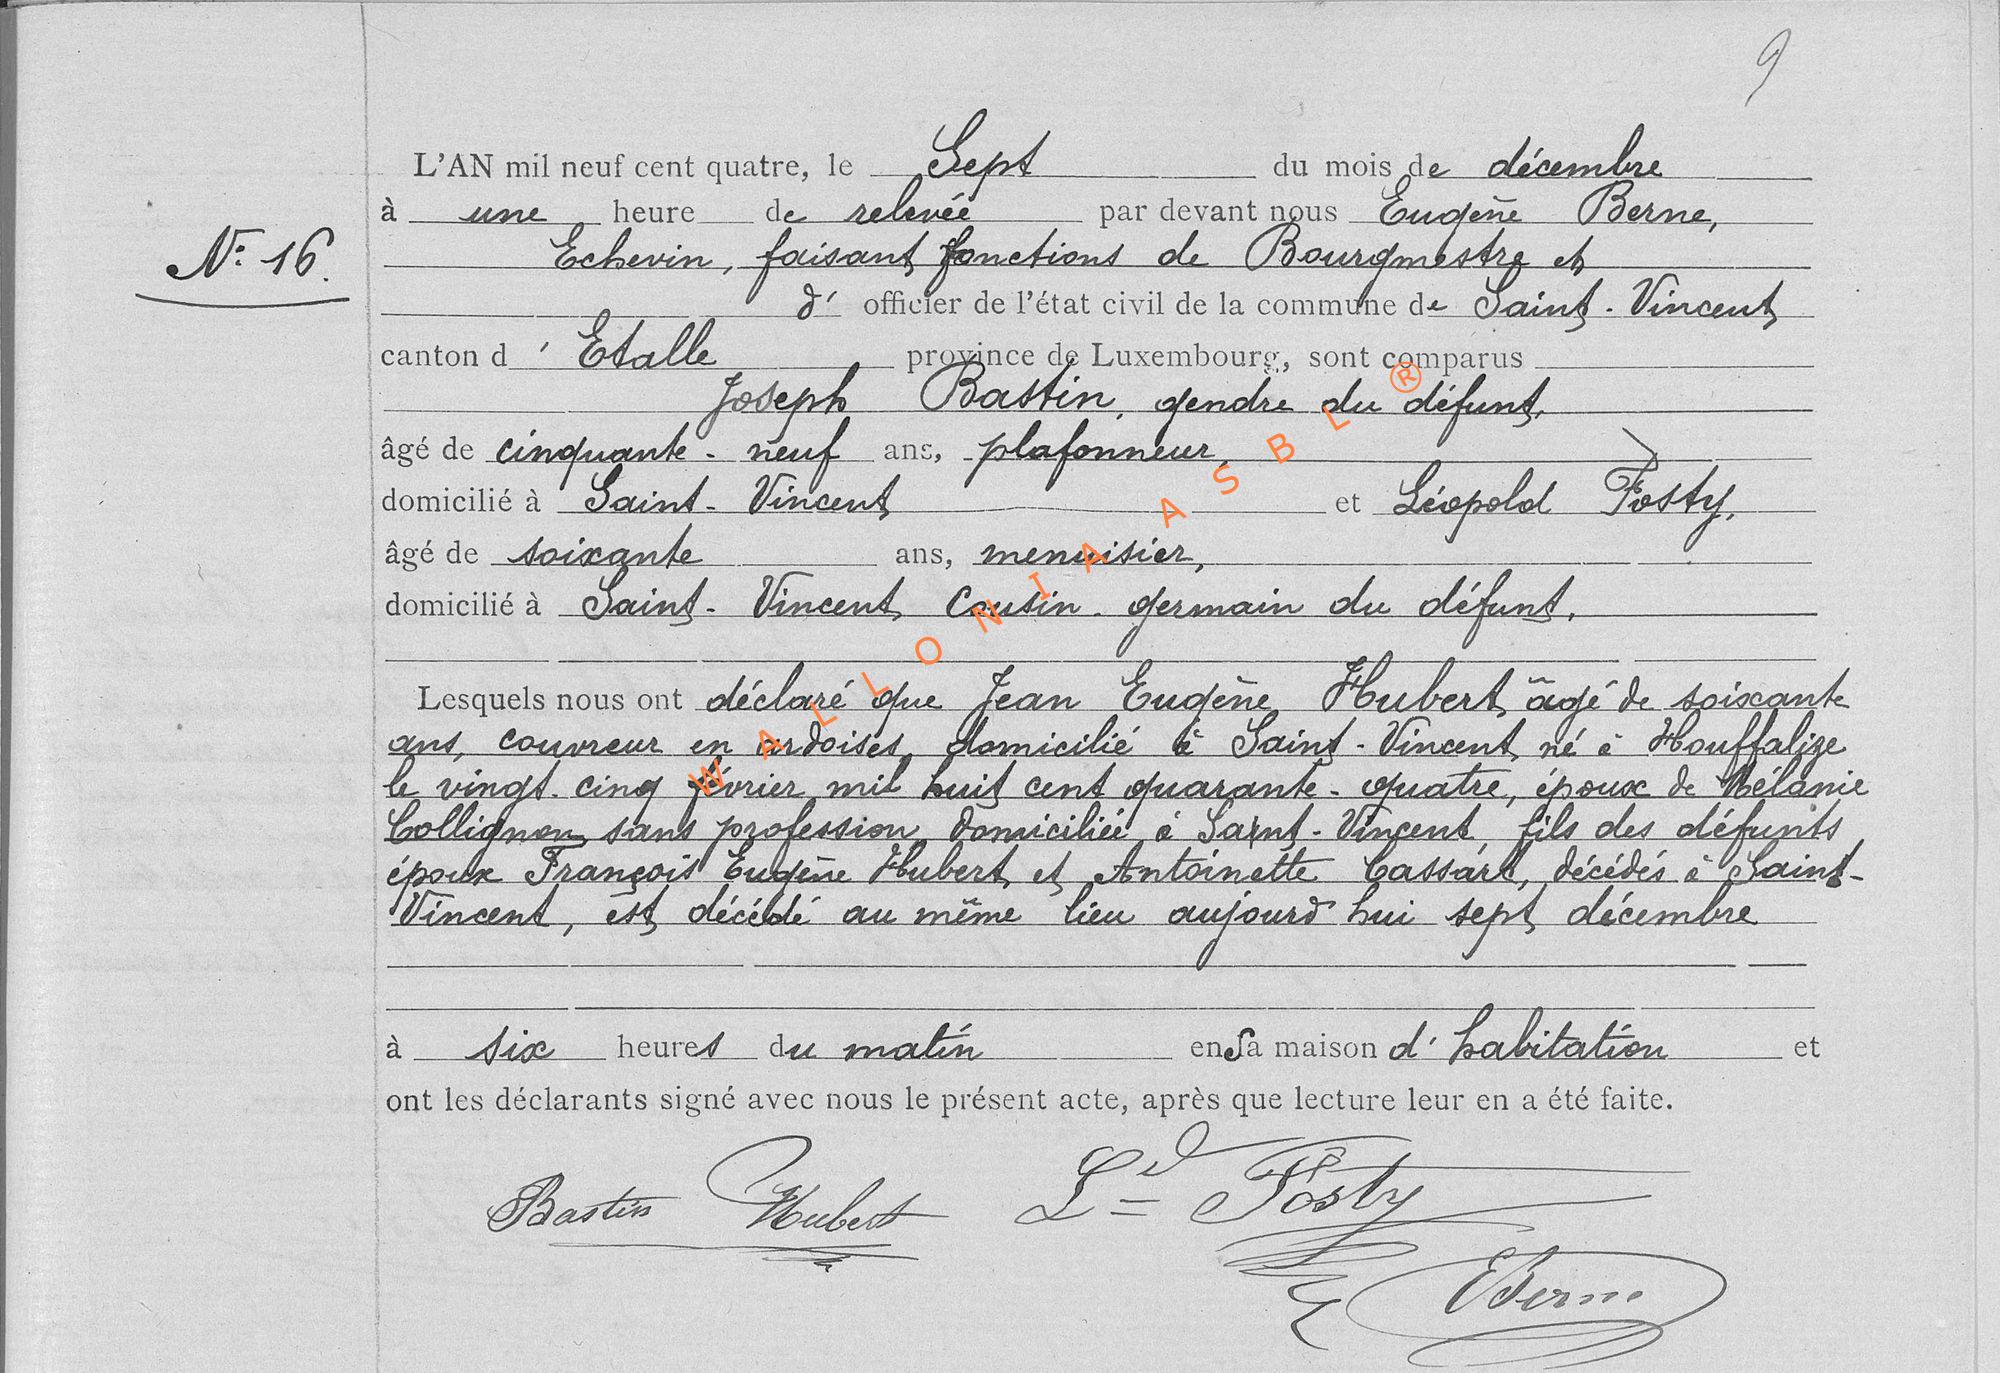 9
L'AN mil neuf cent quatre, le Sept du mois de décembre
à une heure de relevée par devant nous Eugène Berne,
N: 16.
Echevin, faisant fonctions de Bourgmestre et
d' officier de l'état civil de la commune de Saint-Vincent
canton d' Etalle province de Luxembourg, sont comparus
Joseph Bastin, gendre du défunt,
âgé de cinquante-neuf ans, plafonneur,
domicilié à Saint-Vincent et Léopold Fosty,
âgé de soixante ans, menuisier,
domicilié à Saint-Vincent cousin-germain du défunt.
Lesquels nous ont déclaré que Jean Eugène Hubert âgé de soixante
ans, couvreur en ardoises, domicilié à Saint-Vincent né à Houffalize
le vingt-cinq février mil huit cent quarante-quatre, époux de Mélanie
Collignon, sans profession, domiciliée à Saint-Vincent, fils des défunts
époux François Eugène Hubert et Antoinette Cassart, décédés à Saint-
Vincent, est décédé au même lieu aujourd'hui sept décembre
à six heures du matin en sa maison d'habitation et
ont les déclarants signé avec nous le présent acte, après que lecture leur en a été faite.
Bastin Hubert Ld Fosty
EBerne
WALLONIA ASBL ®